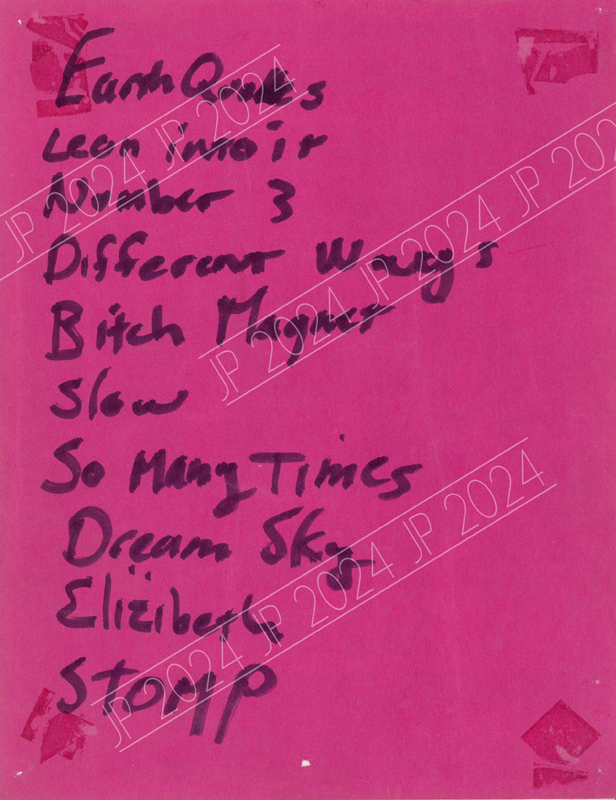 Earth Quakes
Lean into it
Number 3
Different Ways
Bitch Magnet
Slow
So Many Times
Dream Sky
Elizibeth
Stomp
JP 2024 JP 2024
JP 2024 JP 2024 JP 2024
JP 2024 JP 2024 JP 2024